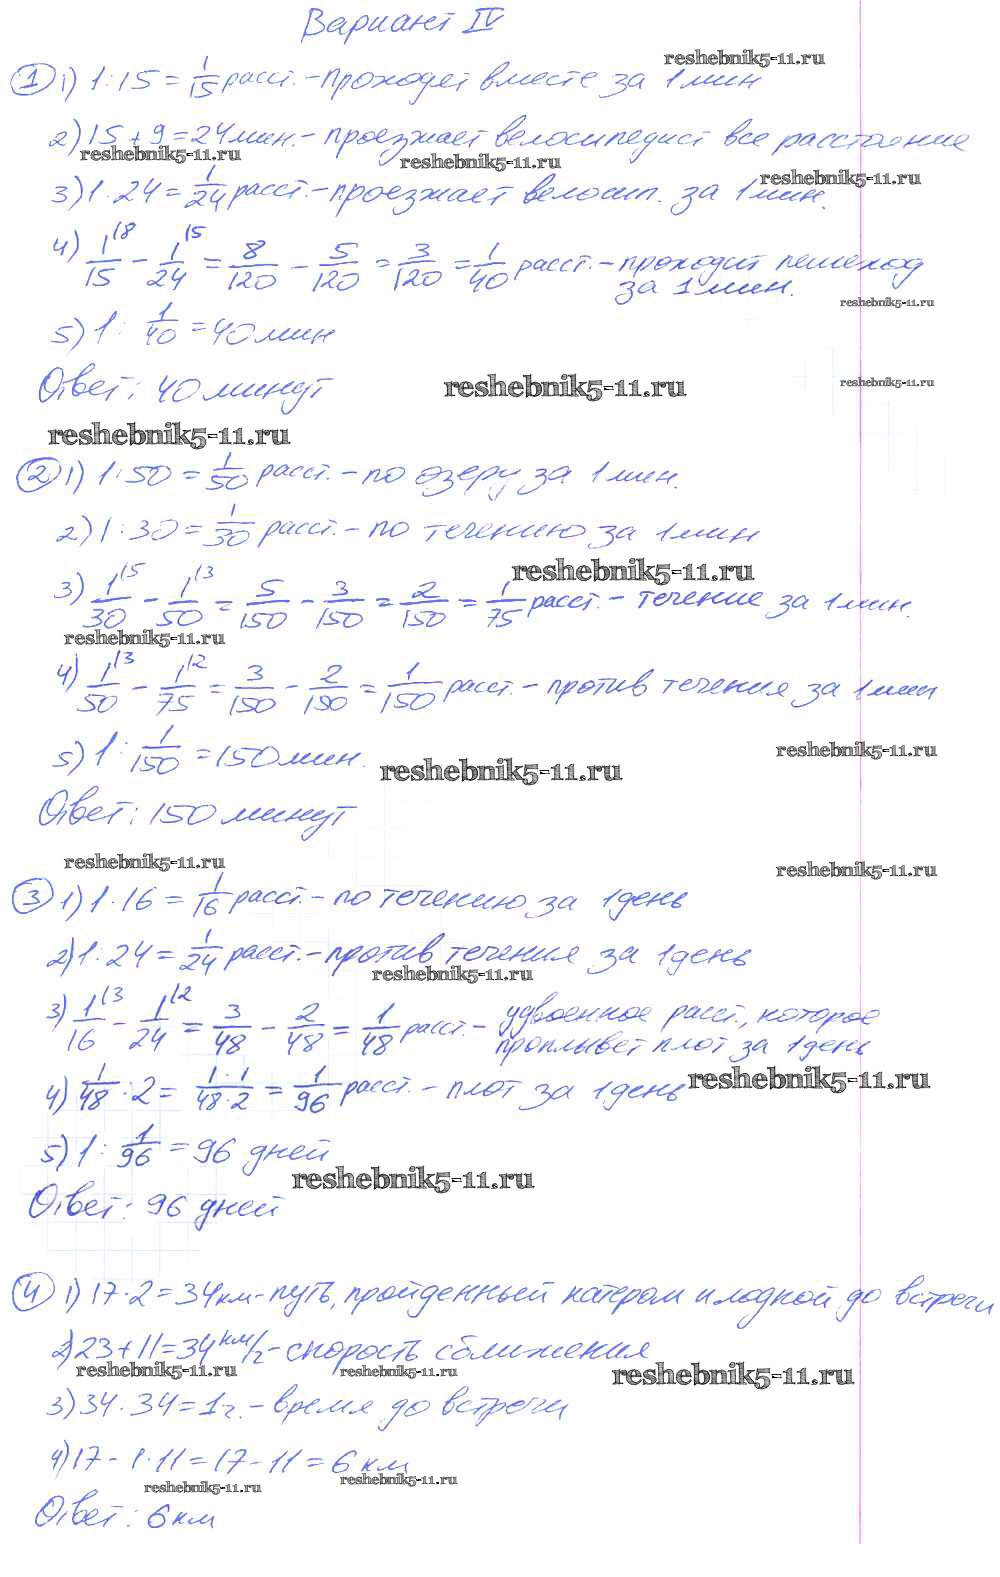 Вариант IV
reshebnik5-11.ru
① 1) 1:15 = 1/15 расст. - проходят вместе за 1 мин
2) 15 + 9 = 24 мин. - проезжает велосипедист все расстояние
reshebnik5-11.ru reshebnik5-11.ru reshebnik5-11.ru
3) 1:24 = 1/24 расст. - проезжает велосип. за 1 мин.
4) 1/15 \8 - 1/24 \5 = 8/120 - 5/120 = 3/120 = 1/40 расст. - проходит пешеход
за 1 мин.
reshebnik5-11.ru
5) 1 : 1/40 = 40 мин
Ответ: 40 минут
reshebnik5-11.ru reshebnik5-11.ru
reshebnik5-11.ru
② 1) 1:50 = 1/50 расст. - по озеру за 1 мин.
2) 1:30 = 1/30 расст. - по течению за 1 мин
reshebnik5-11.ru
3) 1/30 \5 - 1/50 \3 = 5/150 - 3/150 = 2/150 = 1/75 расст. - течение за 1 мин.
reshebnik5-11.ru
4) 1/50 \3 - 1/75 \2 = 3/150 - 2/150 = 1/150 расст. - против течения за 1 мин
5) 1 : 1/150 = 150 мин.
reshebnik5-11.ru reshebnik5-11.ru
Ответ: 150 минут
reshebnik5-11.ru reshebnik5-11.ru
③ 1) 1:16 = 1/16 расст. - по течению за 1 день
2) 1:24 = 1/24 расст. - против течения за 1 день
reshebnik5-11.ru
3) 1/16 \3 - 1/24 \2 = 3/48 - 2/48 = 1/48 расст. - удвоенное расст., которое
проплывет плот за 1 день
4) 1/48 : 2 = 1·1/48·2 = 1/96 расст. - плот за 1 день
reshebnik5-11.ru
5) 1 : 1/96 = 96 дней
reshebnik5-11.ru
Ответ: 96 дней
④ 1) 17·2 = 34 км - путь, пройденный катером и лодкой до встречи
2) 23 + 11 = 34 км/ч - скорость сближения
reshebnik5-11.ru reshebnik5-11.ru reshebnik5-11.ru
3) 34:34 = 1 ч. - время до встречи
4) 17 - 1·11 = 17 - 11 = 6 км
reshebnik5-11.ru reshebnik5-11.ru
Ответ: 6 км